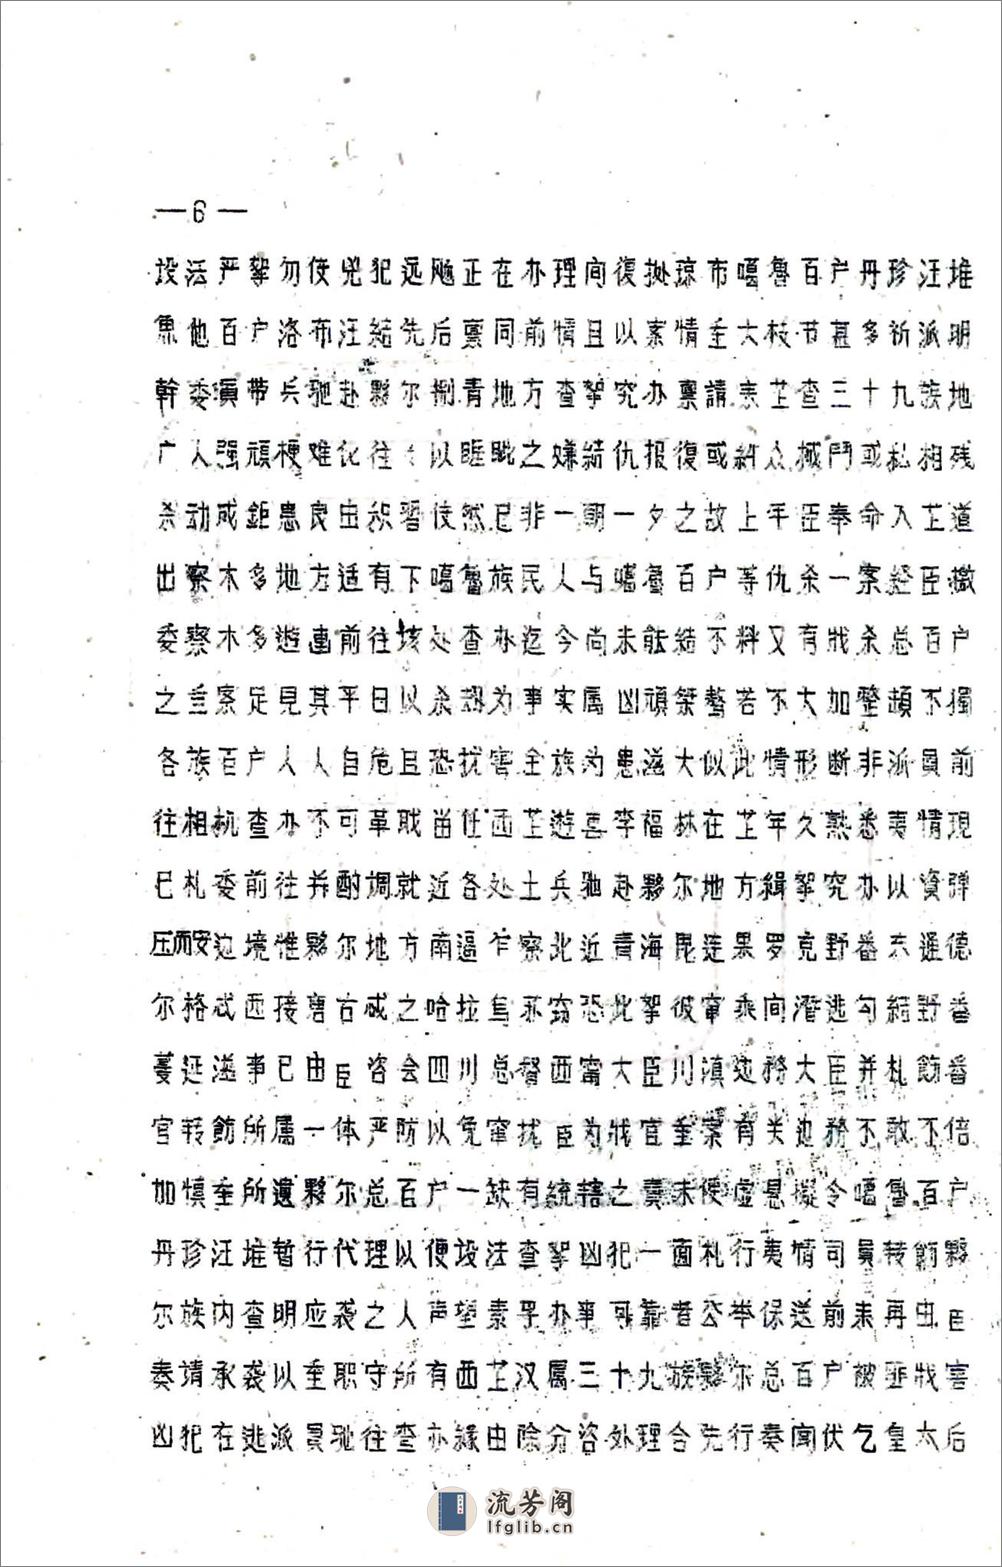 —6—
设法严挐勿使兇犯远颺正在办理间復拠琼布噶鲁百户丹珍汪堆
他百户洛布汪结先后禀同前情且以案情重大枝节甚多祈派明
幹委演带兵驰赴夥尔捌青地方查挐究办禀請表芷查三十九族地
广人强頑梗难化往々以睚眦之嫌結仇报復或糾众械鬥或私相残
杀动成鉅患良由积習使然尼非一朝一夕之故上年臣奉命入芷道
出察木多地方适有下噶鲁族民人与噶鲁百户等仇杀一案经臣撤
委察木多遊击前往垓处查办迄今尚未能结不料又有戕杀总百户
之重案足見其平日以杀刼为事实属凶頑桀骜若不大加整頓不獨
各族百户人人自危且恐扰害全族为患滋大似此情形断非派員前
往相机查办不可革职苗任西芷遊喜李福林在芷年久熟悉夷情現
已札委前往并酌調就近各处土兵驰赴夥尔地方緝挐究办以資弹
压而安边境惟夥尔地方南逼乍察北近青海毘连果罗克野番东通德
尔格忒西接唐古忒之哈拉乌苏窃恐此挐彼窜乘间潛逃勾結野番
蔓延滋事已由臣咨会四川总督西甯大臣川滇边務大臣并札飭番
官转飭所属一体严防以免窜扰臣为戕官重案有关边務不敢不倍
加慎重所遺夥尔总百户一缺有統辖之責未便虛悬擬令噶鲁百户
丹珍汪堆暂行代理以便设法查挐凶犯一面札行夷情司員转飭夥
尔族内查明应袭之人声望素孚办事可靠者公举保送前来再由臣
奏请承袭以重职守所有西芷汉属三十九族夥尔总百户被匪戕害
凶犯在逃派員驰往查办緣由除分咨处理合先行奏闻伏乞皇太后
流芳阁
lfglib.cn